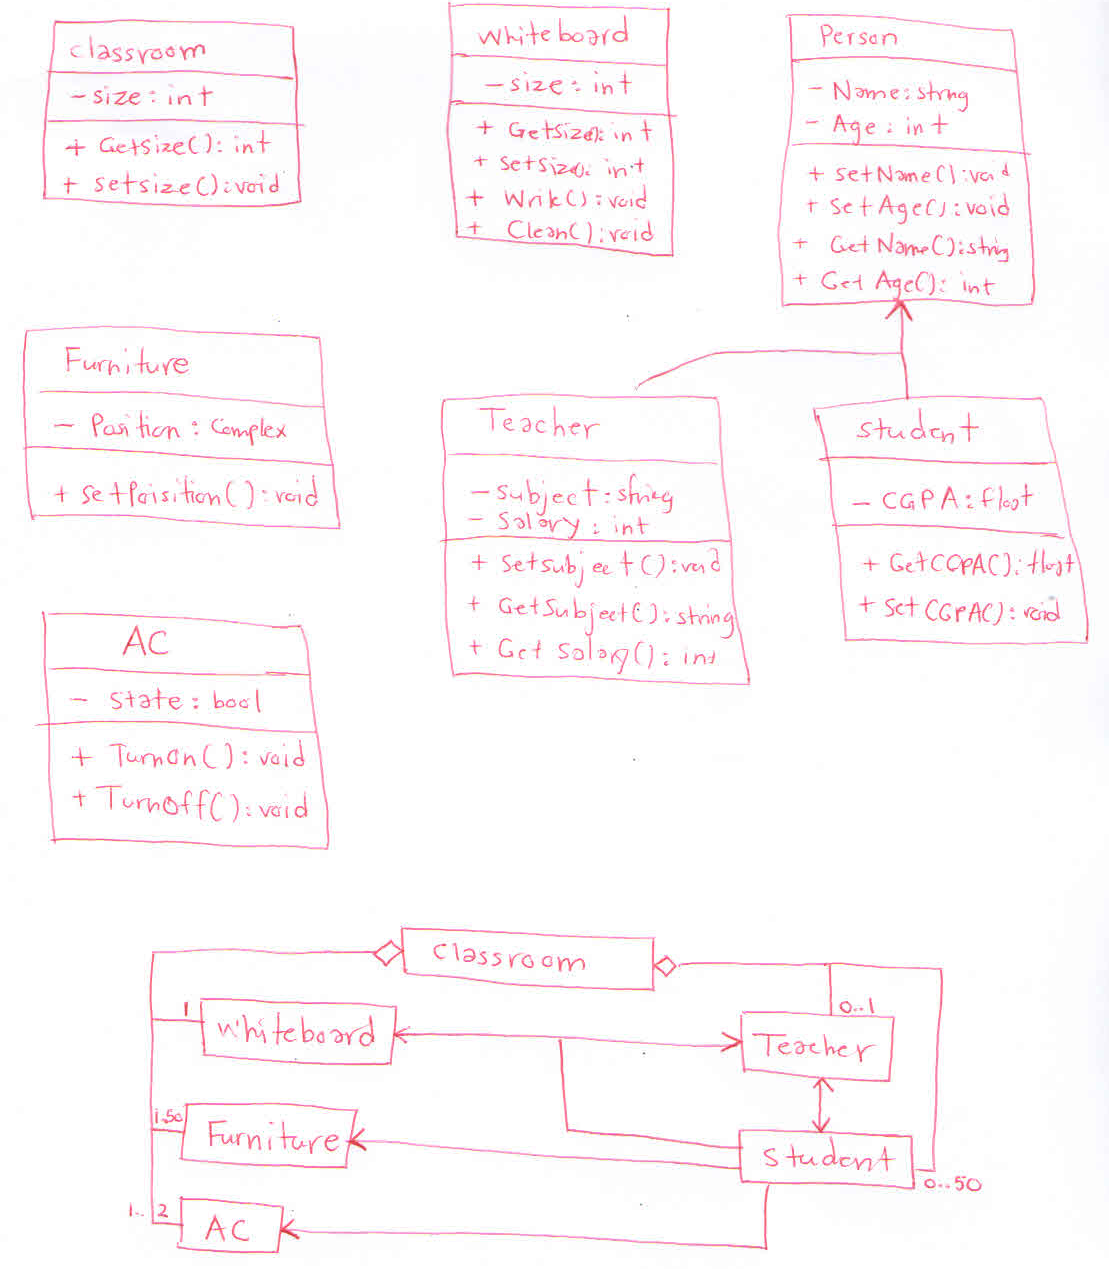 classroom
- size : int
+ Getsize() : int
+ setsize() : void
Whiteboard
- size : int
+ Getsize(): int
+ setsize(): int
+ Write() : void
+ Clean() : void
Person
- Name : string
- Age : int
+ setName() : void
+ set Age() : void
+ Get Name() : string
+ Get Age() : int
Furniture
- Position : Complex
+ setPoisition() : void
Teacher
- subject : string
- Salary : int
+ Setsubject() : void
+ GetSubject() : string
+ Get Salary() : int
student
- CGPA : float
+ GetCGPA() : float
+ set CGPA() : void
AC
- state : bool
+ TurnOn() : void
+ TurnOff() : void
classroom
1
Whiteboard
0..1
Teacher
1.50
Furniture
student
0..50
1.. 2
AC